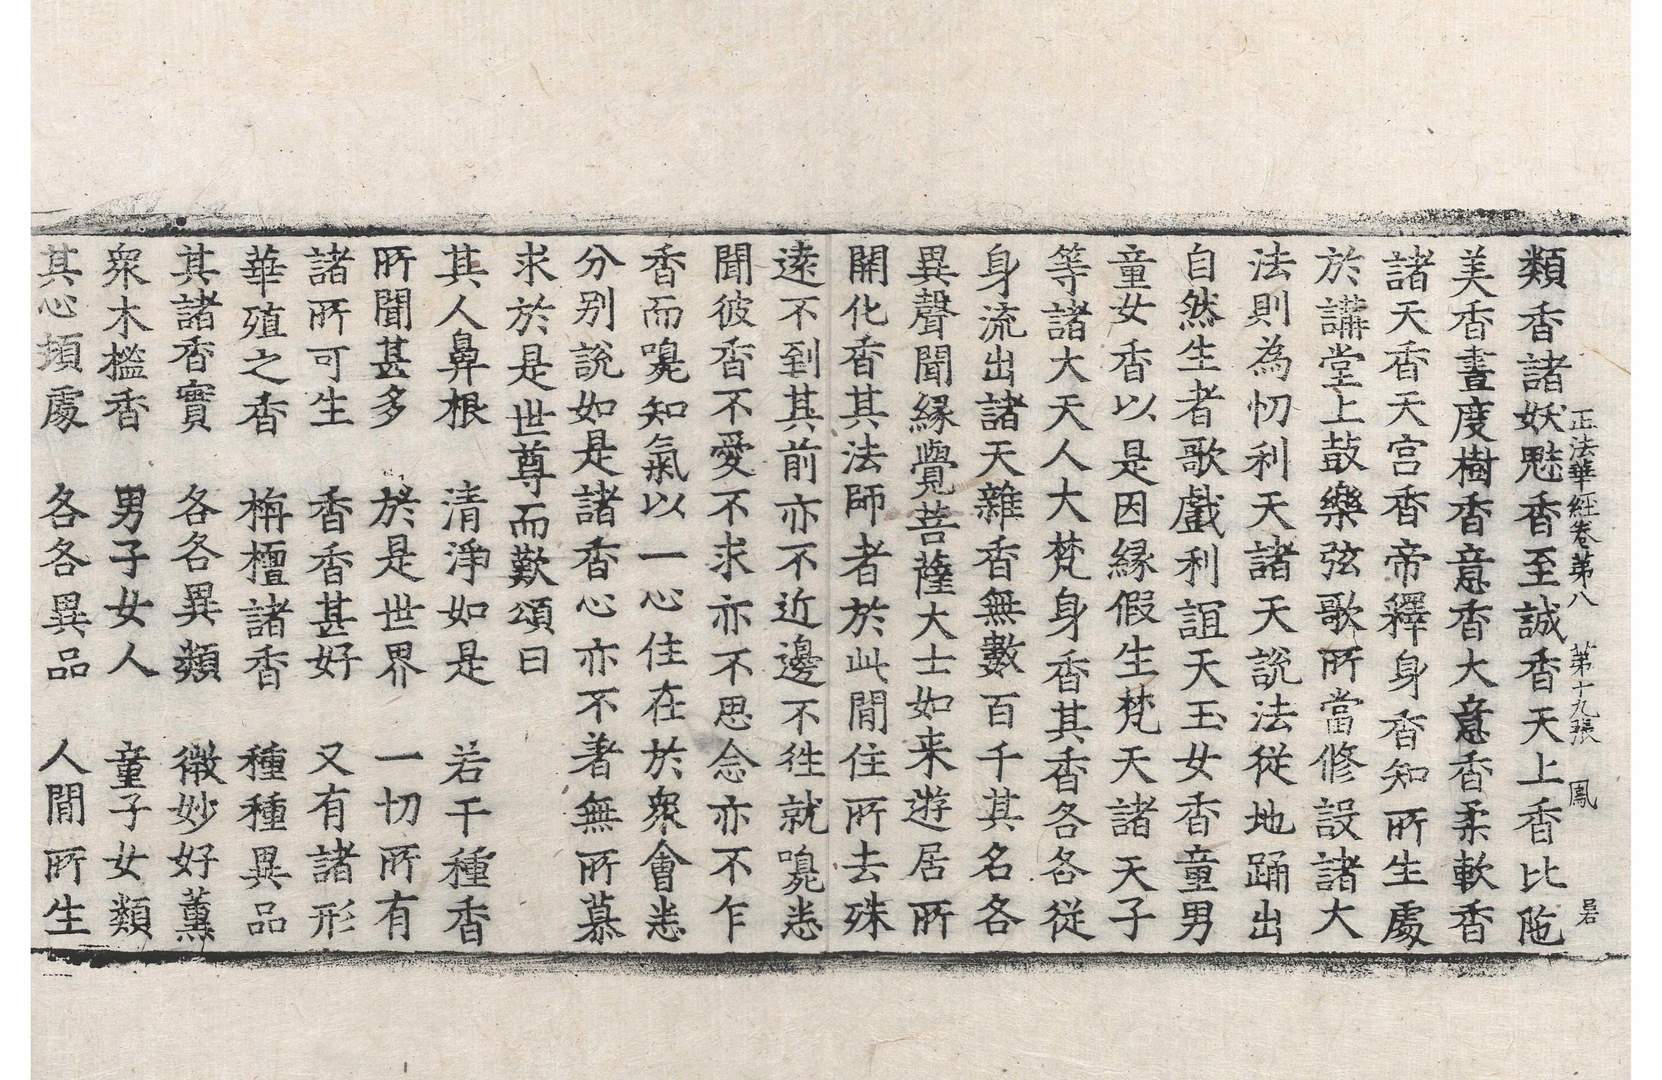 正法華經卷第八 第十九張 鳳
類香諸妖魅香至誠香天上香比陁
美香晝度樹香意香大意香柔軟香
諸天香天宮香帝釋身香知所生處
於講堂上鼓樂弦歌所當修設諸大
法則為忉利天諸天說法從地踊出
自然生者歌戲利誼天玉女香童男
童女香以是因緣假生梵天諸天子
等諸大天人大梵身香其香各各從
身流出諸天雜香無數百千其名各
異聲聞緣覺菩薩大士如来遊居所
開化香其法師者於此閒住所去殊
遠不到其前亦不近邊不往就嗅悉
聞彼香不愛不求亦不思念亦不乍
香而嗅知氣以一心住在於衆會悉
分别說如是諸香心亦不著無所慕
求於是世尊而歎頌曰
其人鼻根 清淨如是 若干種香
所聞甚多 於是世界 一切所有
諸所可生 香香甚好 又有諸形
華殖之香 栴檀諸香 種種異品
其諸香實 各各異類 微妙好薰
衆木櫁香 男子女人 童子女類
其心頞處 各各異品 人閒所生